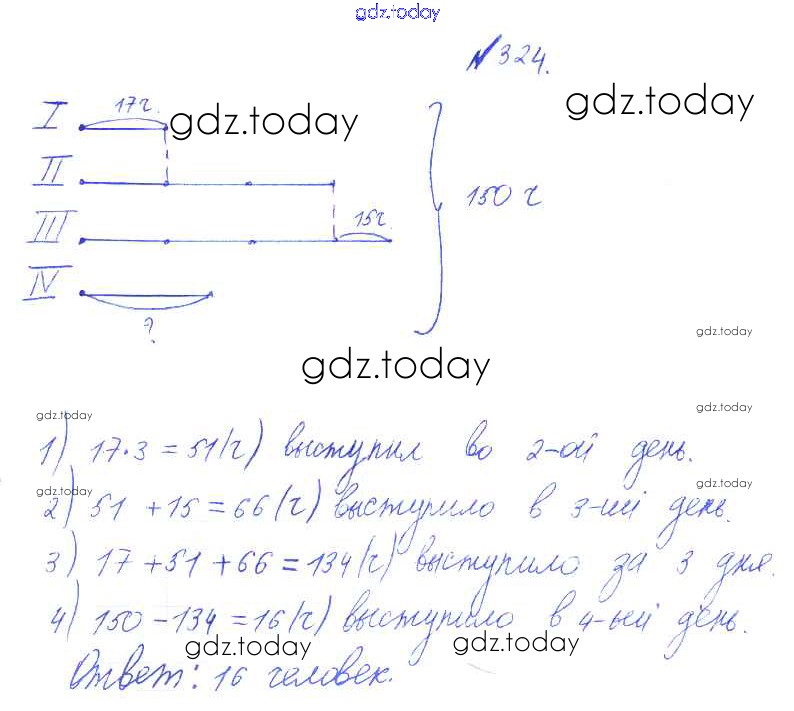 gdz.today
№324.
I 17ч. gdz.today gdz.today
II
150 ч
III 15ч.
IV
?
gdz.today
gdz.today
gdz.today
gdz.today
1) 17·3=51(ч) выступил во 2-ой день.
gdz.today
2) 51+15=66(ч) выступило в 3-ий день.
3) 17+51+66=134(ч) выступило за 3 дня.
4) 150-134=16(ч) выступило в 4-ый день.
gdz.today gdz.today
Ответ: 16 человек.